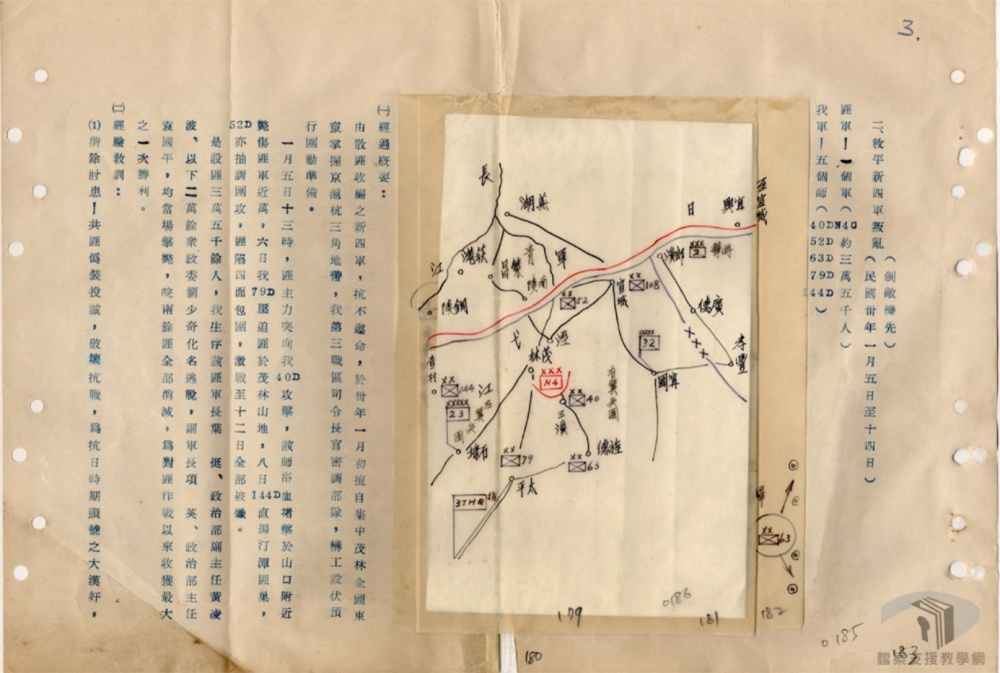 3.
二、敉平新四軍叛亂（制敵機先）
（民國卅年一月五日至十四日）
匪軍－一個軍（N4G約三萬五千人）
我軍－五個師（40D 52D 63D 79D 144D）
(一)經過概要：
由散匪收編之新四軍，抗不遵命，於卅年一月初擅自集中茂林企圖東
竄掌握京滬杭三角地帶，我第三戰區司令長官密調部隊，構工設伏預
行圍勦準備。
一月五日十三時，匪主力突向我40D攻擊，該師浴血堵擊於山口附近
斃傷匪軍近萬，六日我79D壓迫匪於茂林山地，八日144D直搗汀潭匪巢，
52D亦抽調圍攻，匪陷四面包圍，激戰至十二日全部被殲。
是役匪三萬五千餘人，我生俘該匪軍長葉　挺、政治部副主任黃凌
波、以下二萬餘衆政委劉少奇化名逃脫，副軍長項　英、政治部主任
袁國平，均當場擊斃，皖南餘匪全部消滅，為對匪作戰以來收獲最大
之一次勝利。
(二)經驗教訓：
(1)消除肘患－共匪偽裝投誠，破壞抗戰，為抗日時期頭號之大漢奸，
長
江
蕪湖
荻港
繁昌
南陵
青
銅陵
日
軍
宜興
至宣城
郎溪
2
宣城
108
52
廣德
孝豐
32
寧國
涇
弋
江
茂林
N4
40
三溪
右翼兵團
144
23
左翼兵團
石埭
青村
79
63
旌德
太平
37HQ
63
179
180
181
182
183
0185
0186
檔案支援教學網